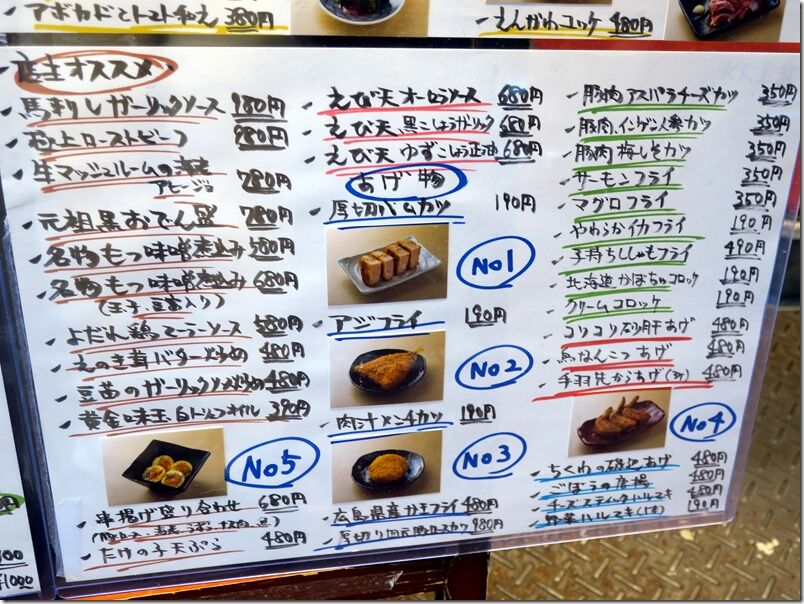 アボカドとトマト和え 380円
えんがわコッケ 480円
店主オススメ
馬刺しガーリックソース 980円
極上ローストビーフ 980円
牛マッシュルームの
アヒージョ 780円
元祖黒おでん盛 780円
名物もつ味噌煮込み 580円
名物もつ味噌煮込み 680円
(玉子 豆富入り)
よだれ鶏マーラーソース 580円
えのき茸バター炒め 480円
豆苗のガーリックソメ炒め 480円
黄金味玉白トリュフオイル 390円
No5
串揚げ盛り合わせ 680円
たけの子天ぷら 480円
えび天オーロラソース 680円
えび天黒こしょうガーリック 680円
えび天ゆずこしょう正油 680円
あげ物
厚切ハムカツ 190円
No1
アジフライ 190円
No2
肉汁メンチカツ 190円
No3
広島県産かきフライ 480円
厚切り肉元豚ロースカツ 980円
豚肉アスパラチーズカツ 350円
豚肉インゲン人参カツ 350円
豚肉梅しそカツ 350円
サーモンフライ 350円
マグロフライ 350円
やわらかイカフライ 190円
子持ちししゃもフライ 490円
北海道かぼちゃコロッケ 190円
クリームコロッケ 190円
コリコリ砂肝あげ 480円
鳥なんこつあげ 480円
手羽先からあげ(3ヶ) 480円
No4
ちくわの磯辺あげ 480円
ごぼうの唐揚 480円
チーズスティックハルマキ 480円
野菜ハルマキ(1本) 190円
¥1000